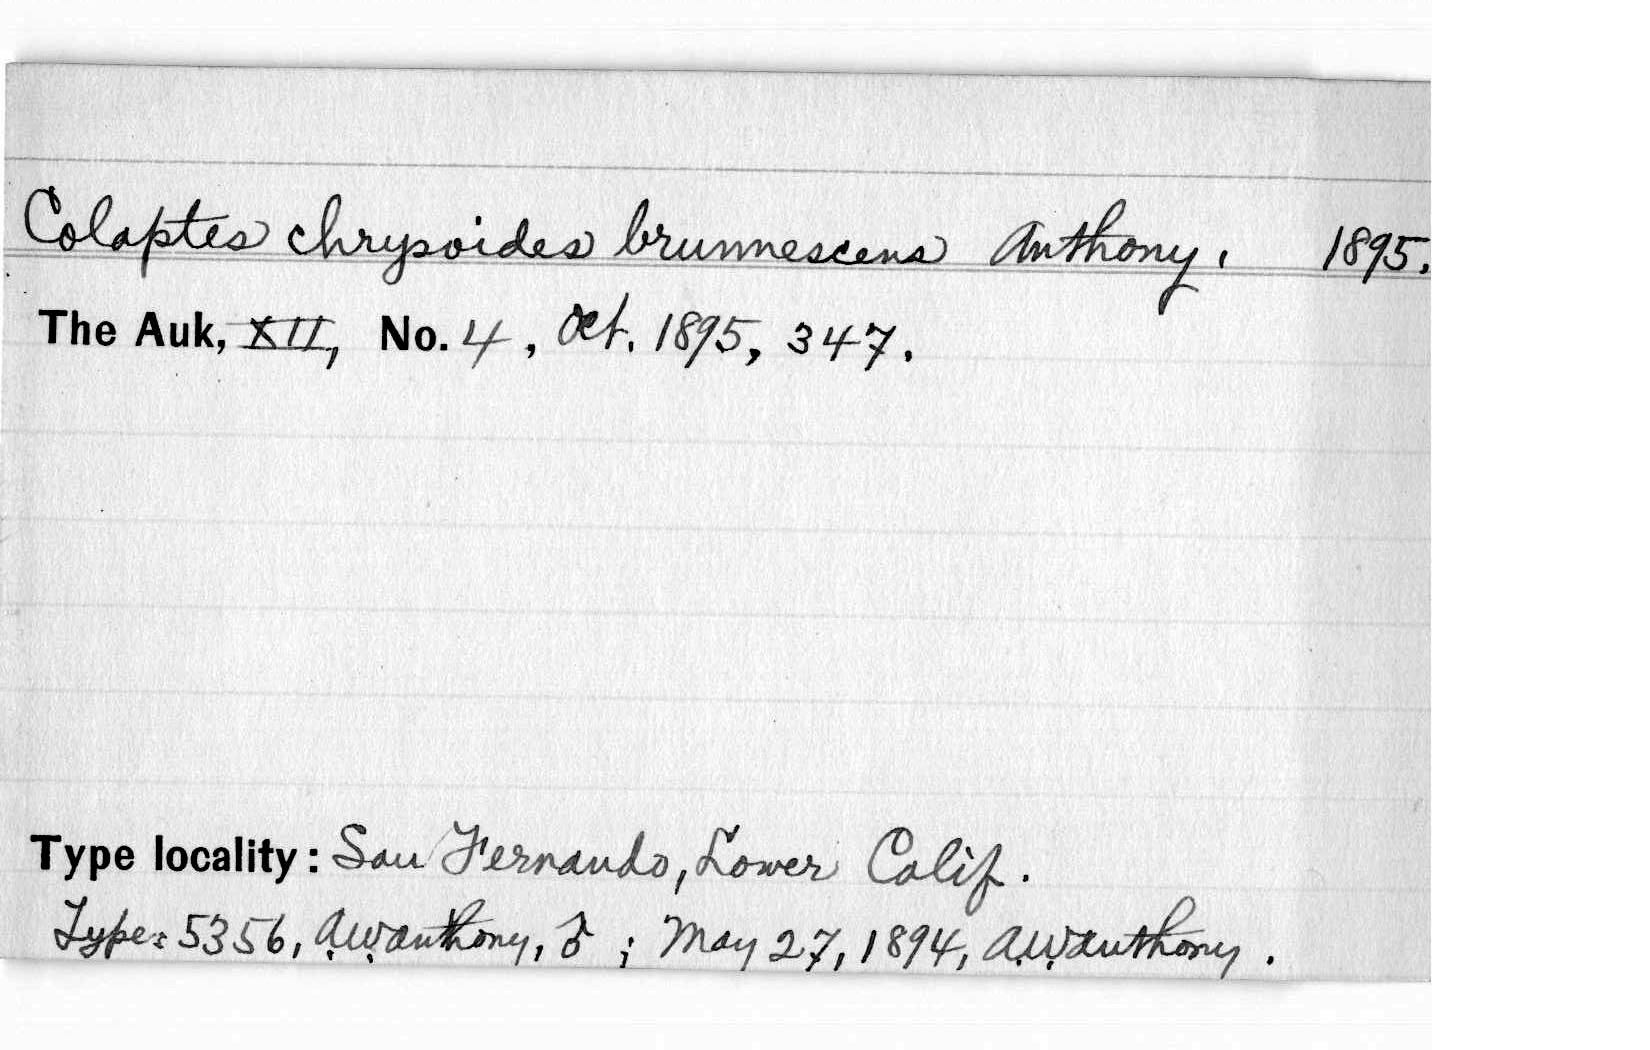 Colaptes chrysoides brunnescens Anthony. 1895.
The Auk, XII, No. 4, Oct. 1895, 347.
Type locality: San Fernando, Lower Calif.
Type: 5356, A.W. Anthony, ♂; May 27, 1894, A.W. Anthony.